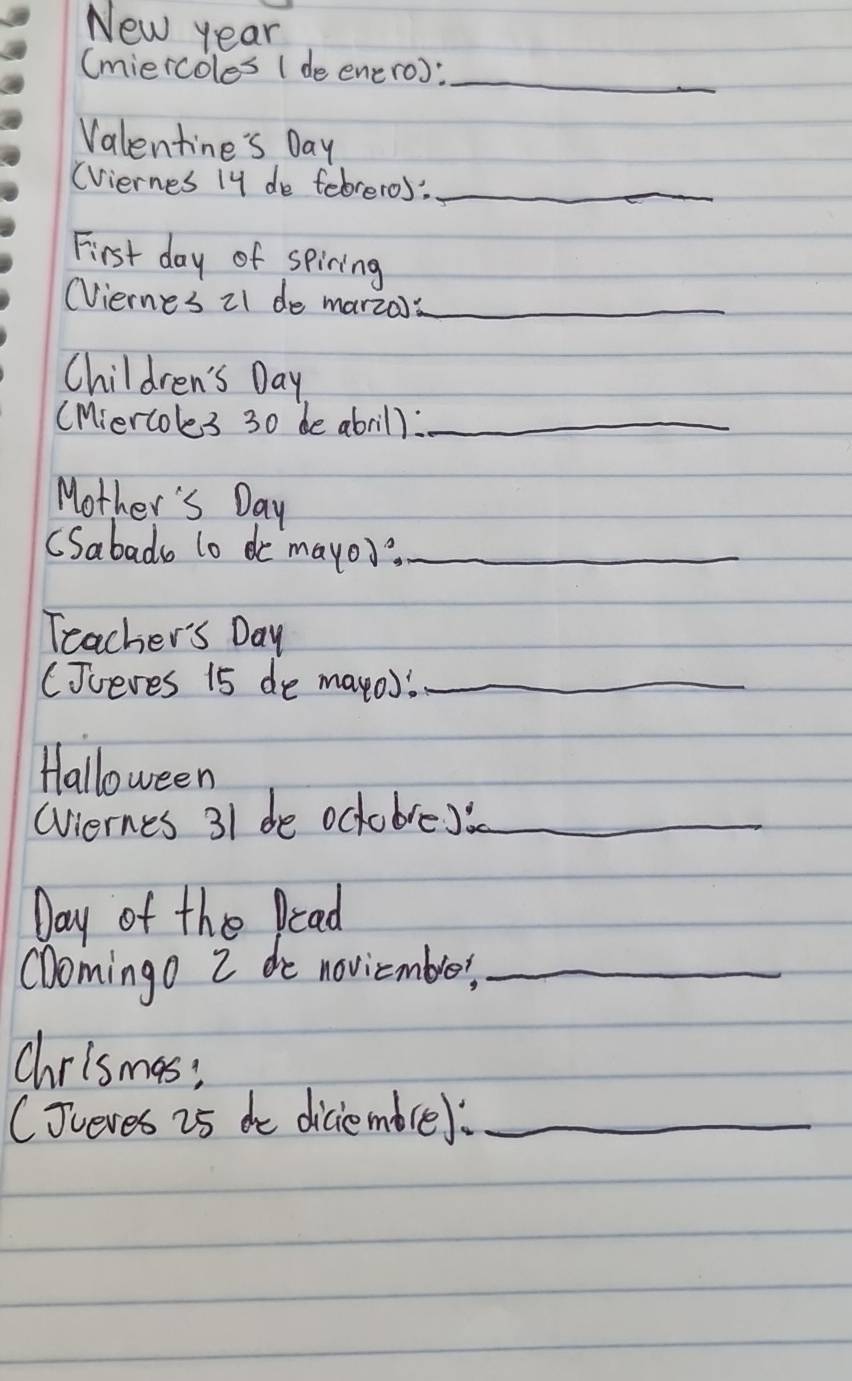 New year
(miercoles 1 de enero):____________
Valentine's Day
(Viernes 14 de febrero):____________
First day of spiring
(Viernes 21 de marzo):____________
Children's Day
(Miercoles 30 de abril):____________
Mother's Day
(Sabado 10 de mayo):____________
Teacher's Day
(Jueves 15 de mayo):____________
Halloween
(Viernes 31 de octubre):____________
Day of the Dead
(Domingo 2 de noviembre:____________
Chrismas:
(Jueves 25 de diciembre):____________